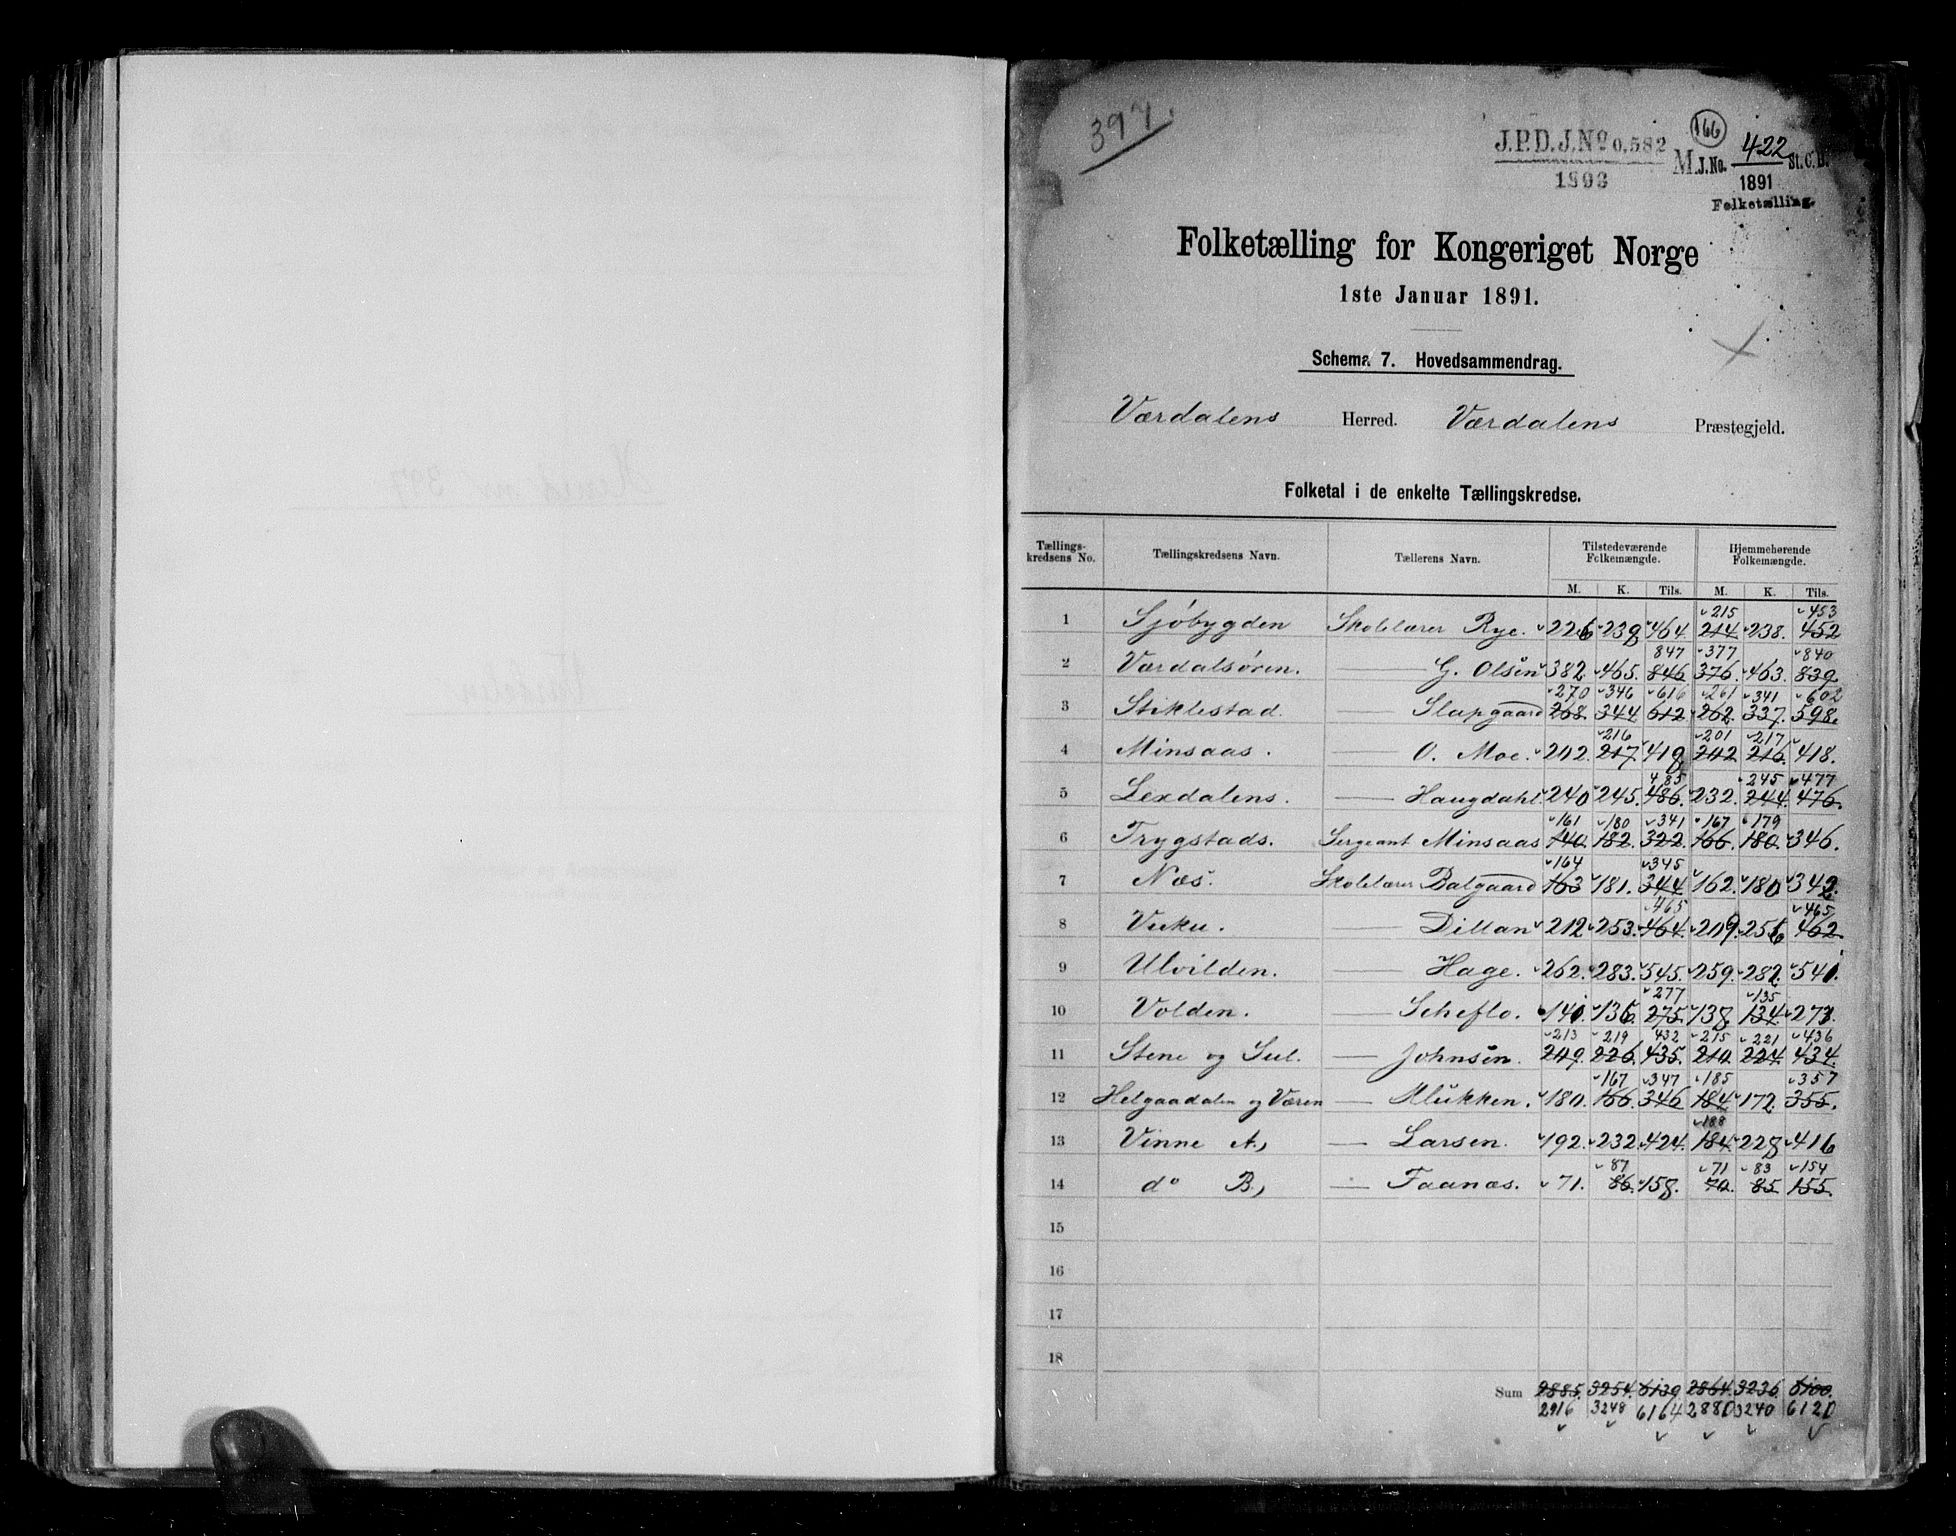 397.
J.P.D.J.No 0,582
1893
166
M.J.No. 422 St.C.B.
1891
Folketælling.
Folketælling for Kongeriget Norge
1ste Januar 1891.
Schema 7. Hovedsammendrag.
Værdalens Herred. Værdalens Præstegjeld.
Folketal i de enkelte Tællingskredse.
Tællings-kredsens No. Tællingskredsens Navn. Tællerens Navn. Tilstedeværende Folkemængde. Hjemmehørende Folkemængde.
M. K. Tils. M. K. Tils.
215 453
1 Sjöbygden Skolelærer Rye. 226 238 464 214 238. 452
847 377 840
2 Værdalsören. — G. Olsen 382 465. 846 376. 463. 839
270 346 616 261 341 602
3 Stiklestad. — Slapgaard 268. 344 612 262. 337. 598.
216 201 217
4 Minsaas. — O. Moe. 202. 217. 418 202 216. 418.
485 245 477
5 Lexdalens. — Haugdahl 240 245. 486. 232. 244. 476.
161 180 341 167 179
6 Trygstads. Sergeant Minsaas 140. 182. 322. 166. 180. 346.
164 345
7 Næs. Skolelærer Balgaard 163 181. 344 162. 180 342.
465 465
8 Vuku. — Dillan 212 253. 464. 209. 256 462.
9 Ulvilden. — Hage. 262. 283. 545. 259. 282. 541.
277 135
10 Volden. — Scheflo. 141. 136. 275. 138. 134. 273.
213 219 432 215 221 436
11 Stene og Sul. — Johnsen. 209. 226. 435. 210. 224. 434.
167 347 185 357
12 Helgaadalen og Væren — Klukken. 180. 166. 346 184 172. 355.
188
13 Vinne A, — Larsen. 192. 232. 424. 184. 228 416
87 71 83 154
14 do B, — Faanæs. 71. 86. 158. 70. 85 155.
15
16
17
18
Sum 2885. 3254. 6139 2864. 3236. 6100.
2916 3248 6164 2880 3240 6120